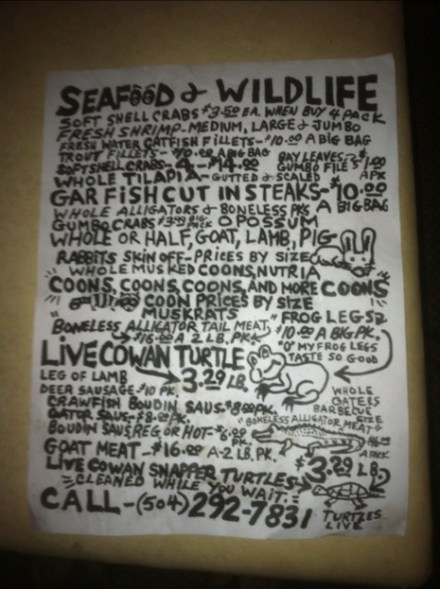 SEAFOOD & WILDLIFE
SOFT SHELL CRABS $3.50 EA. WHEN BUY 4 PACK
FRESH SHRIMP-MEDIUM, LARGE & JUMBO
FRESH WATER CATFISH FILLETS-$10.00 A BIG BAG
TROUT FILLETS-$10.00 A BIG BAG
BAY LEAVES-$1.00
SOFTSHELL CRABS-4-$14.00
GUMBO FILE $1.00
WHOLE TILAPIA-GUTTED & SCALED
A PK
GAR FISH CUT IN STEAKS-$10.00
A BIG BAG
WHOLE ALLIGATORS & BONELESS PKS
GUMBO CRABS PACK OPOSSUM
WHOLE OR HALF, GOAT, LAMB, PIG
RABBITS SKIN OFF-PRICES BY SIZE
WHOLE MUSKED COONS, NUTRIA
COONS, COONS, COONS, AND MORE COONS
COON PRICES BY SIZE
MUSKRATS
"FROG LEGS"
BONELESS ALLIGATOR TAIL MEAT
$10.00 A BIG PK.
$16.00 A 2 LB. PK.
"O" MY FROG LEGS
TASTE SO GOOD
LIVE COWAN TURTLE
3.29 LB.
LEG OF LAMB
DEER SAUSAGE-$10 PK.
WHOLE
GATERS
BARBECUE
SIZE
CRAWFISH BOUDIN SAUS-$8.00 PK.
GATOR SAUS-$8.00 PK.
"BONELESS ALLIGATOR MEAT"
A PACK
BOUDIN SAUS, REG OR HOT-$6.00 PK.
GOAT MEAT-$16.00 A-2 LB. PK.
LIVE COWAN SNAPPER TURTLES
$3.29 LB.
CLEANED WHILE YOU WAIT
CALL-(504) 292-7831
TURTLES
LIVE